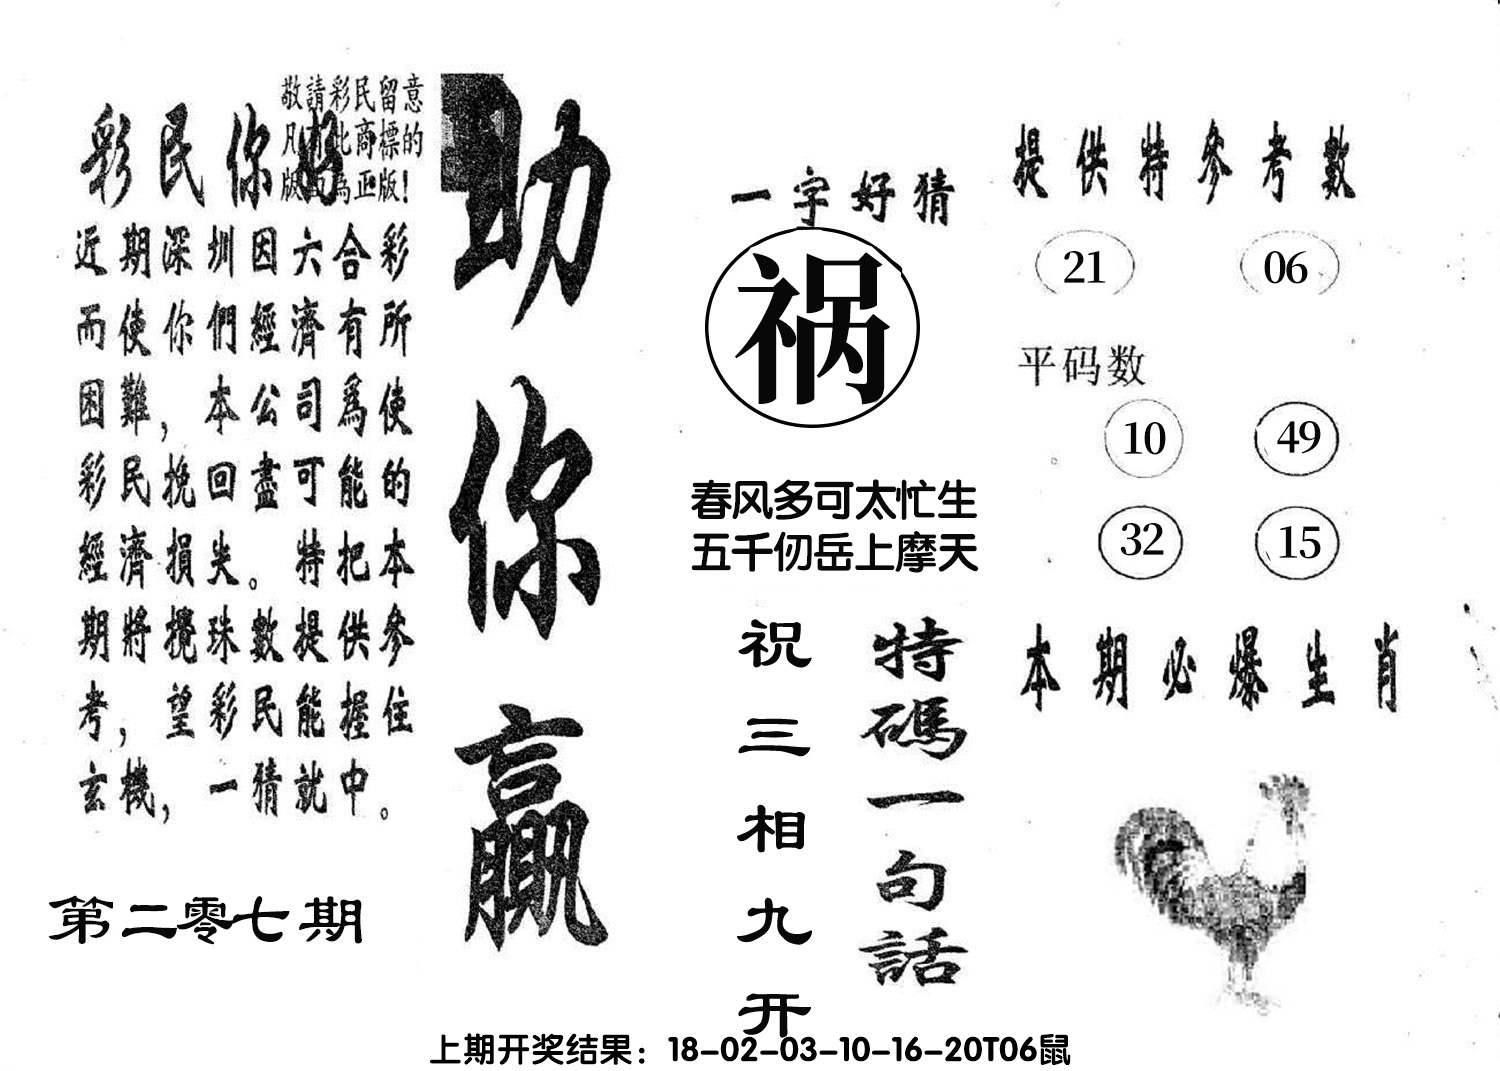 敬請彩民留意
凡有此商標的
版面為正版!
彩民你好
近期深圳因六合彩
而使你們經濟有所
困難，本公司爲使
彩民挽回盡可能的
經濟損失。特把本
期將攪珠數提供參
考，望彩民能握住
玄機，一猜就中。
第二零七期
助你贏
一字好猜
祸
春风多可太忙生
五千仞岳上摩天
特碼一句話
祝三相九开
提供特參考數
21 06
平码数
10 49
32 15
本期必爆生肖
上期开奖结果：18-02-03-10-16-20T06鼠